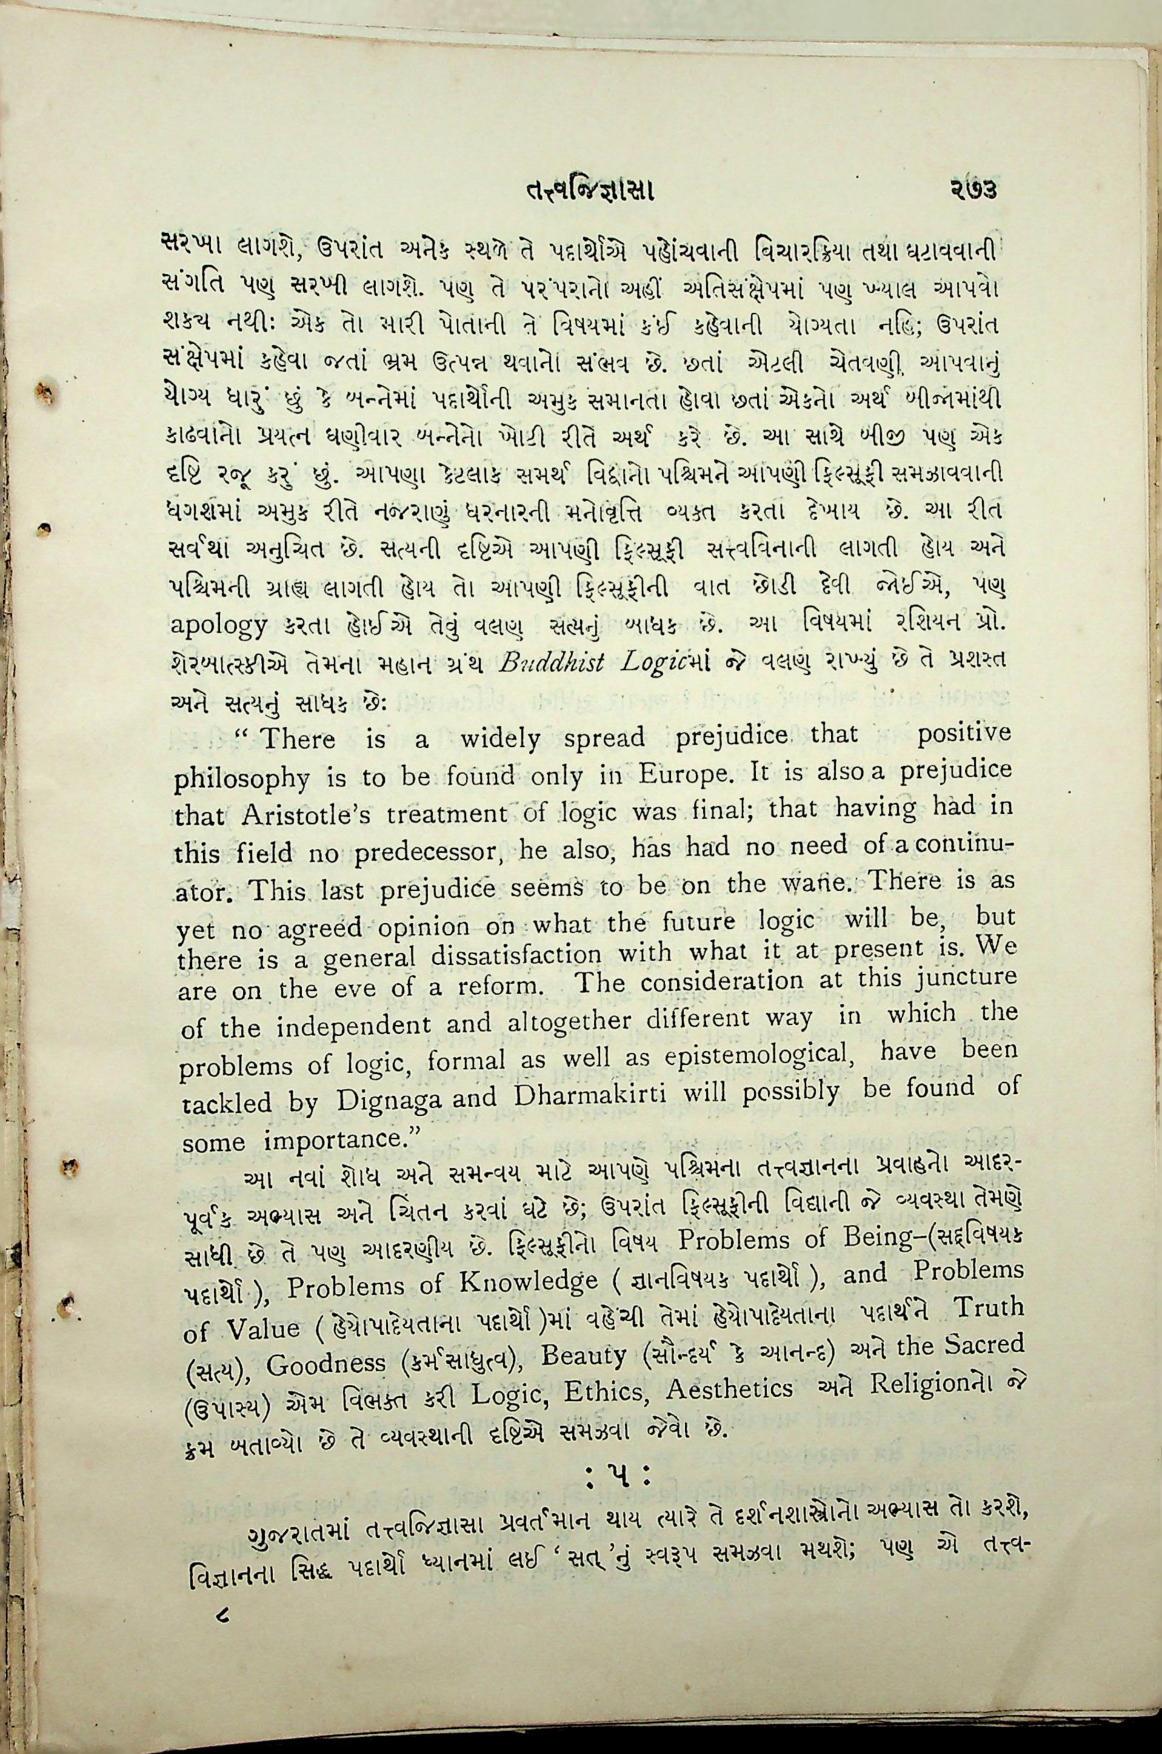 તત્ત્વજિજ્ઞાસા ૨૭૩
સરખા લાગશે, ઉપરાંત અનેક સ્થળે તે પદાર્થોએ પહોંચવાની વિચારક્રિયા તથા ઘટાવવાની
સંગતિ પણ સરખી લાગશે. પણ તે પરંપરાનો અહીં અતિસંક્ષેપમાં પણ ખ્યાલ આપવો
શક્ય નથી: એક તો મારી પોતાની તે વિષયમાં કંઈ કહેવાની યોગ્યતા નહિ; ઉપરાંત
સંક્ષેપમાં કહેવા જતાં ભ્રમ ઉત્પન્ન થવાનો સંભવ છે. છતાં એટલી ચેતવણી આપવાનું
યોગ્ય ધારું છું કે બન્નેમાં પદાર્થોની અમુક સમાનતા હોવા છતાં એકનો અર્થ બીજામાંથી
કાઢવાનો પ્રયત્ન ઘણીવાર બન્નેનો ખોટી રીતે અર્થ કરે છે. આ સાથે બીજી પણ એક
દૃષ્ટિ રજૂ કરું છું. આપણા કેટલાક સમર્થ વિદ્વાનો પશ્ચિમને આપણી ફિલ્સૂફી સમઝાવવાની
ધગશમાં અમુક રીતે નજરાણું ધરનારની મનોવૃત્તિ વ્યક્ત કરતા દેખાય છે. આ રીત
સર્વથા અનુચિત છે. સત્યની દૃષ્ટિએ આપણી ફિલ્સૂફી સત્ત્વવિનાની લાગતી હોય અને
પશ્ચિમની ગ્રાહ્ય લાગતી હોય તો આપણી ફિલ્સૂફીની વાત છોડી દેવી જોઈએ, પણ
apology કરતા હોઈએ તેવું વલણ સત્યનું બાધક છે. આ વિષયમાં રશિયન પ્રો.
શેરબાત્સ્કીએ તેમના મહાન ગ્રંથ Buddhist Logicમાં જે વલણ રાખ્યું છે તે પ્રશસ્ત
અને સત્યનું સાધક છે:
“ There is a widely spread prejudice that positive
philosophy is to be found only in Europe. It is also a prejudice
that Aristotle’s treatment of logic was final; that having had in
this field no predecessor, he also, has had no need of a continu-
ator. This last prejudice seems to be on the wane. There is as
yet no agreed opinion on what the future logic will be, but
there is a general dissatisfaction with what it at present is. We
are on the eve of a reform. The consideration at this juncture
of the independent and altogether different way in which the
problems of logic, formal as well as epistemological, have been
tackled by Dignaga and Dharmakirti will possibly be found of
some importance.”
આ નવાં શોધ અને સમન્વય માટે આપણે પશ્ચિમના તત્ત્વજ્ઞાનના પ્રવાહનો આદર-
પૂર્વક અભ્યાસ અને ચિંતન કરવાં ઘટે છે; ઉપરાંત ફિલ્સૂફીની વિદ્યાની જે વ્યવસ્થા તેમણે
સાધી છે તે પણ આદરણીય છે. ફિલ્સૂફીનો વિષય Problems of Being–(સદ્વિષયક
પદાર્થો ), Problems of Knowledge ( જ્ઞાનવિષયક પદાર્થો ), and Problems
of Value ( હેયોપાદેયતાના પદાર્થો )માં વહેંચી તેમાં હેયોપાદેયતાના પદાર્થને Truth
(સત્ય), Goodness (કર્મસાધુત્વ), Beauty (સૌન્દર્ય કે આનન્દ) અને the Sacred
(ઉપાસ્ય) એમ વિભક્ત કરી Logic, Ethics, Aesthetics અને Religionનો જે
ક્રમ બતાવ્યો છે તે વ્યવસ્થાની દૃષ્ટિએ સમઝવા જેવો છે.
: ૫ :
ગુજરાતમાં તત્ત્વજિજ્ઞાસા પ્રવર્તમાન થાય ત્યારે તે દર્શનશાસ્ત્રોનો અભ્યાસ તો કરશે,
વિજ્ઞાનના સિદ્ધ પદાર્થો ધ્યાનમાં લઈ ‘સત્’નું સ્વરૂપ સમઝવા મથશે; પણ એ તત્ત્વ-
૮